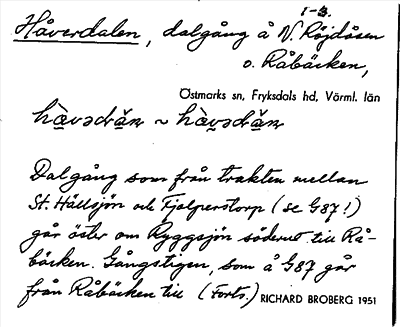 1-3.
Håverdalen, dalgång å N. Röjdåsen
o. Råbäcken,
Östmarks sn, Fryksdals hd, Värml. län
hàvədrän ~ hàvədrän
Dalgång som från trakten mellan
St. Hällsjön och Fjolperstorp (se G87!)
går öster om Ryggsjön söderut till Rå-
bäcken. Gångstigen, som å G87 går
från Råbäcken till (Forts.) RICHARD BROBERG 1951